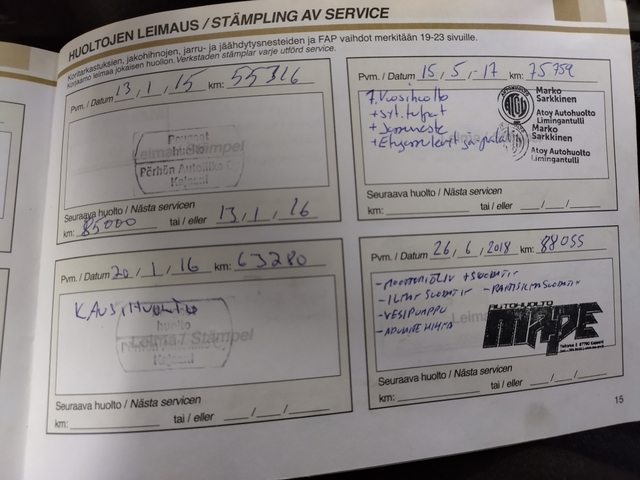 HUOLTOJEN LEIMAUS / STÄMPLING AV SERVICE
Koritarkastuksien, jakohihnojen, jarru- ja jäähdytysnesteiden ja FAP vaihdot merkitään 19-23 sivuille.
Korjaamo leimaa jokaisen huollon. Verkstaden stämplar varje utförd service.
Pvm. / Datum 13 / 1 / 15 km: 55316
Leima / Stämpel
Peugeot
huolto
Kajaani
Seuraava huolto / Nästa servicen
km: 85000 tai / eller 13 / 1 / 16
Pvm. / Datum 15, 5, -17 km: 75759
7. Vuosihuolto
+ syt. tulpat
Marko
Sarkkinen
Atoy Autohuolto
Limingantulli
Marko
Sarkkinen
Atoy Autohuolto
Limingantulli
Seuraava huolto / Nästa servicen
km: tai / eller
Pvm. / Datum 20 / 1 / 16 km: 63280
KAUSIHUOLTO
huolto
Leima / Stämpel
Kajaani
Seuraava huolto / Nästa servicen
km: tai / eller
Pvm. / Datum 26, 6, 2018 km: 88055
- MOOTTORIÖLJY + SUODATIN
- ILMAN SUODATIN - RAITISILMASUODATIN
- VESIPUMPPU
AUTOHUOLTO
MAPE
Seuraava huolto / Nästa servicen
km: tai / eller
15